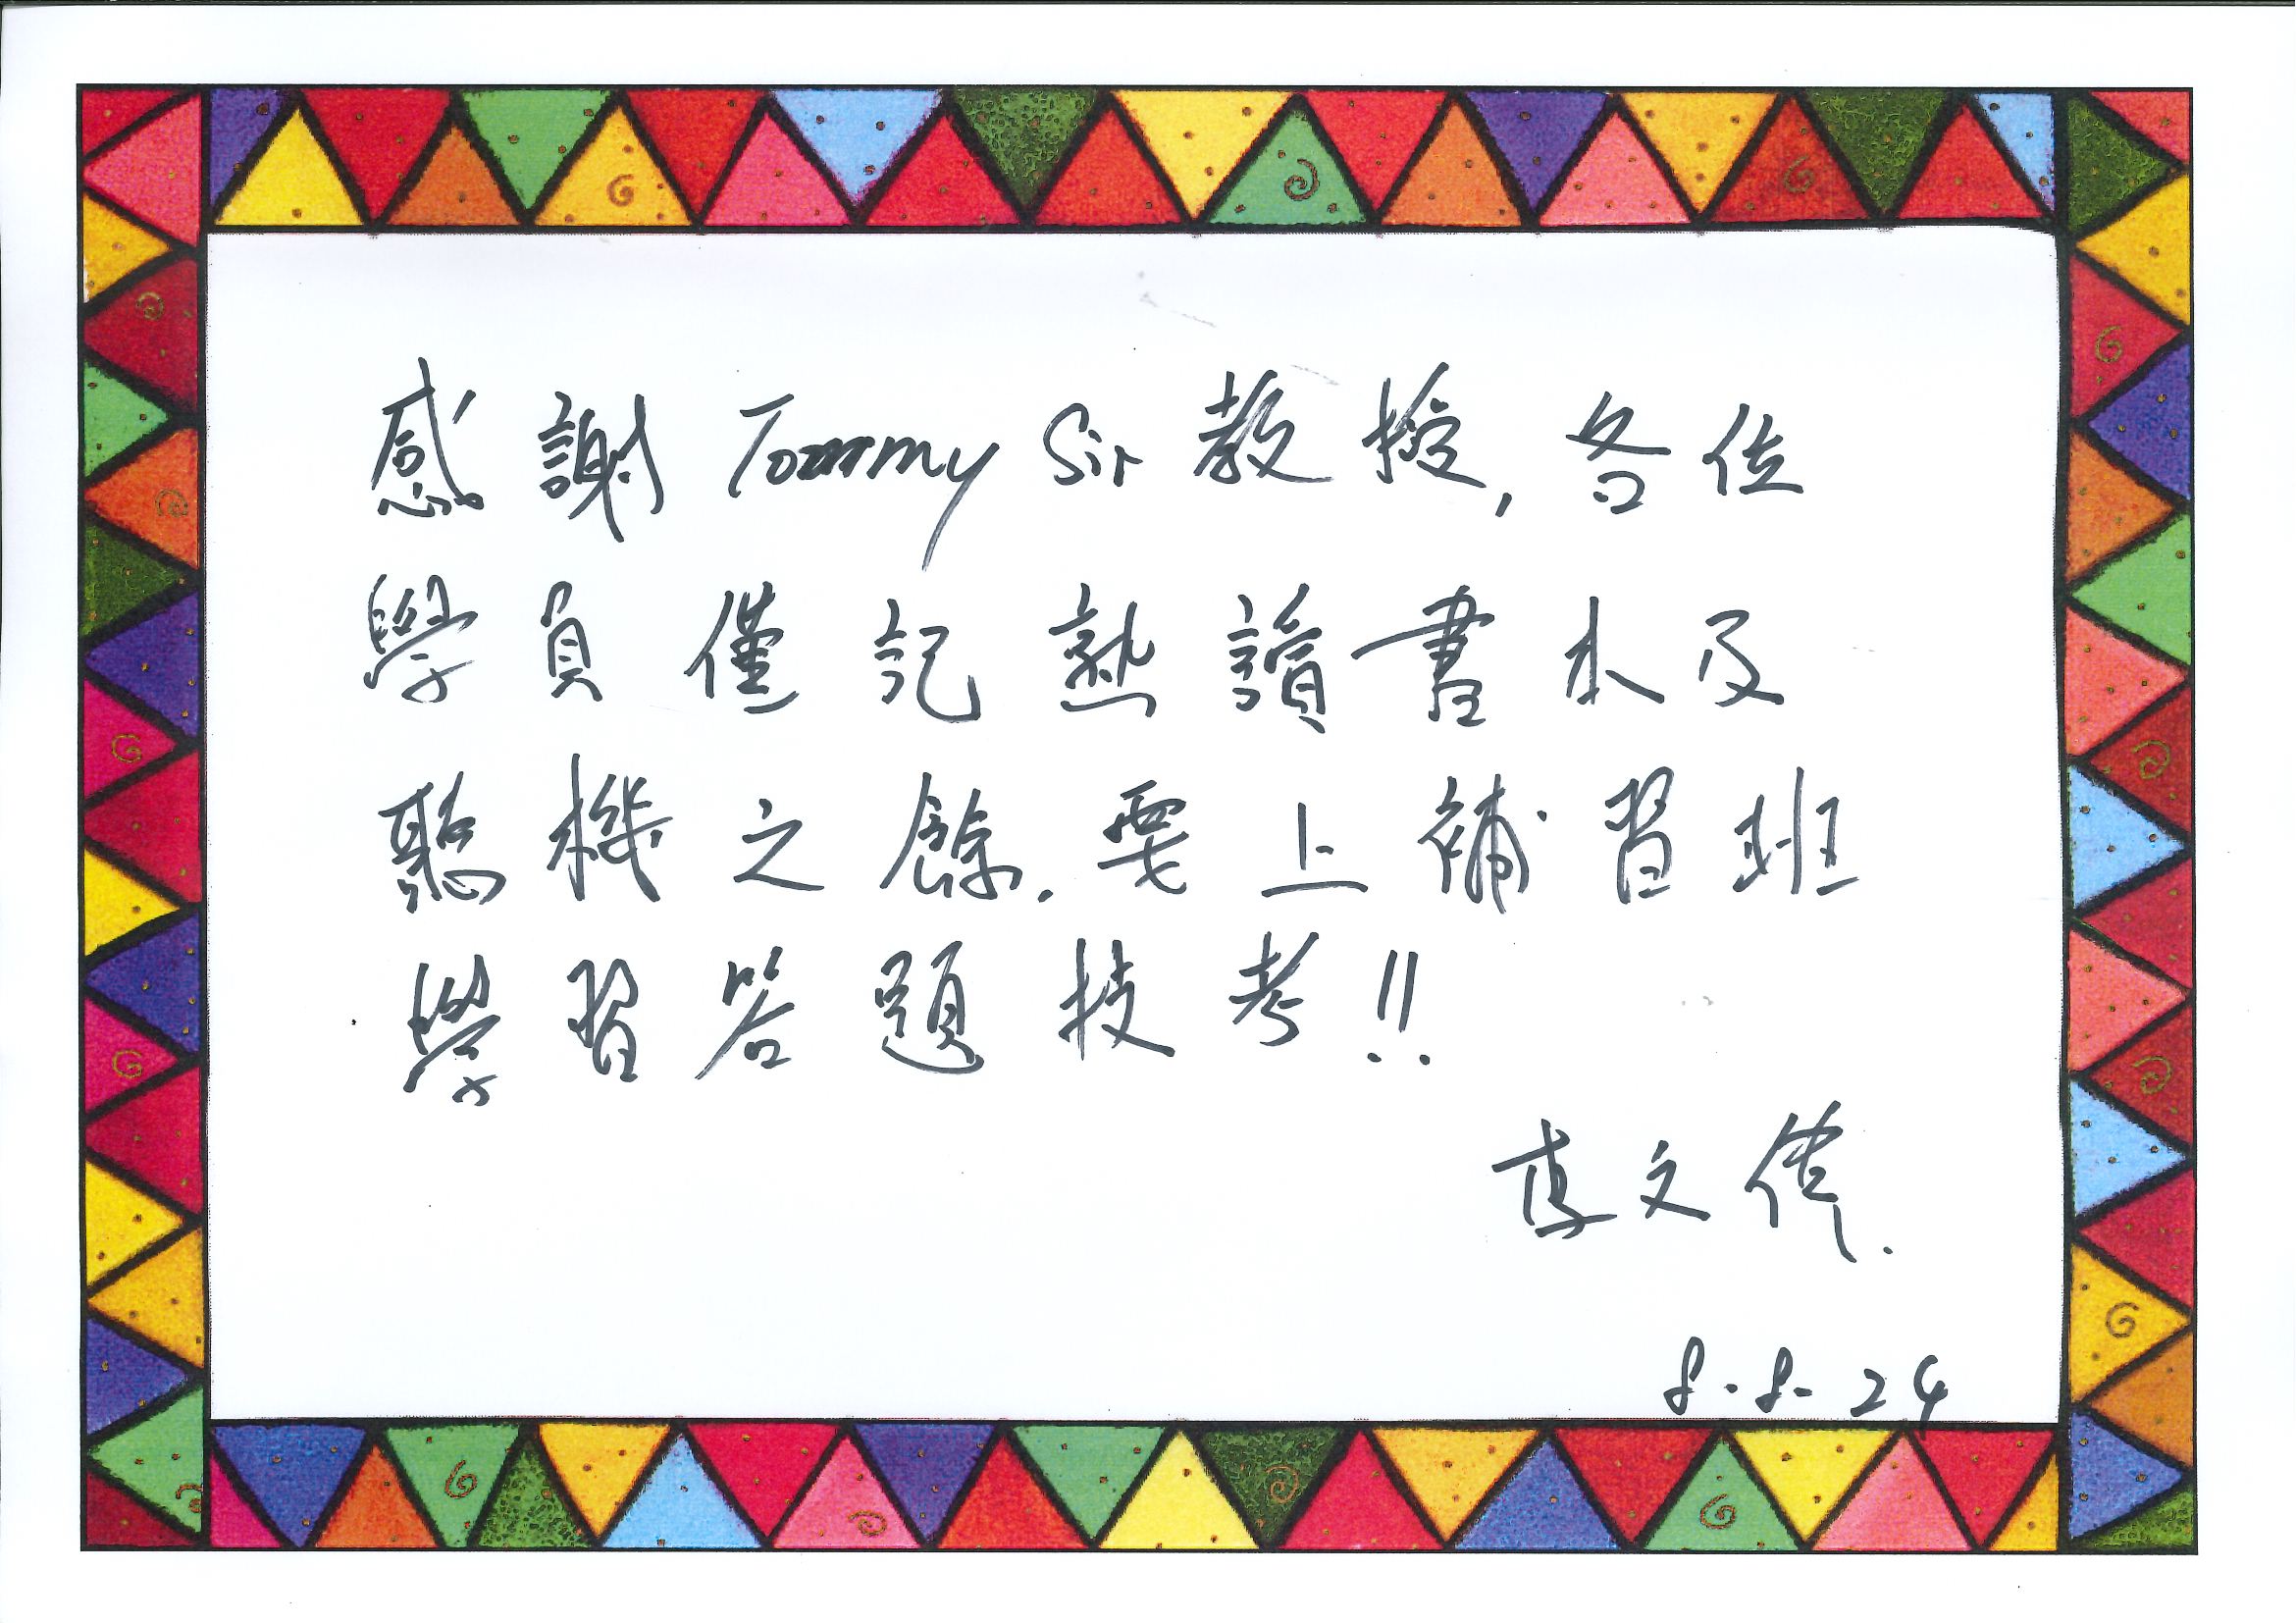 感謝 Tommy Sir 教授, 各位
學員僅記熟讀書本及
聽機之餘. 要上補習班
學習答題技考!!
李文偉.
8.8.24